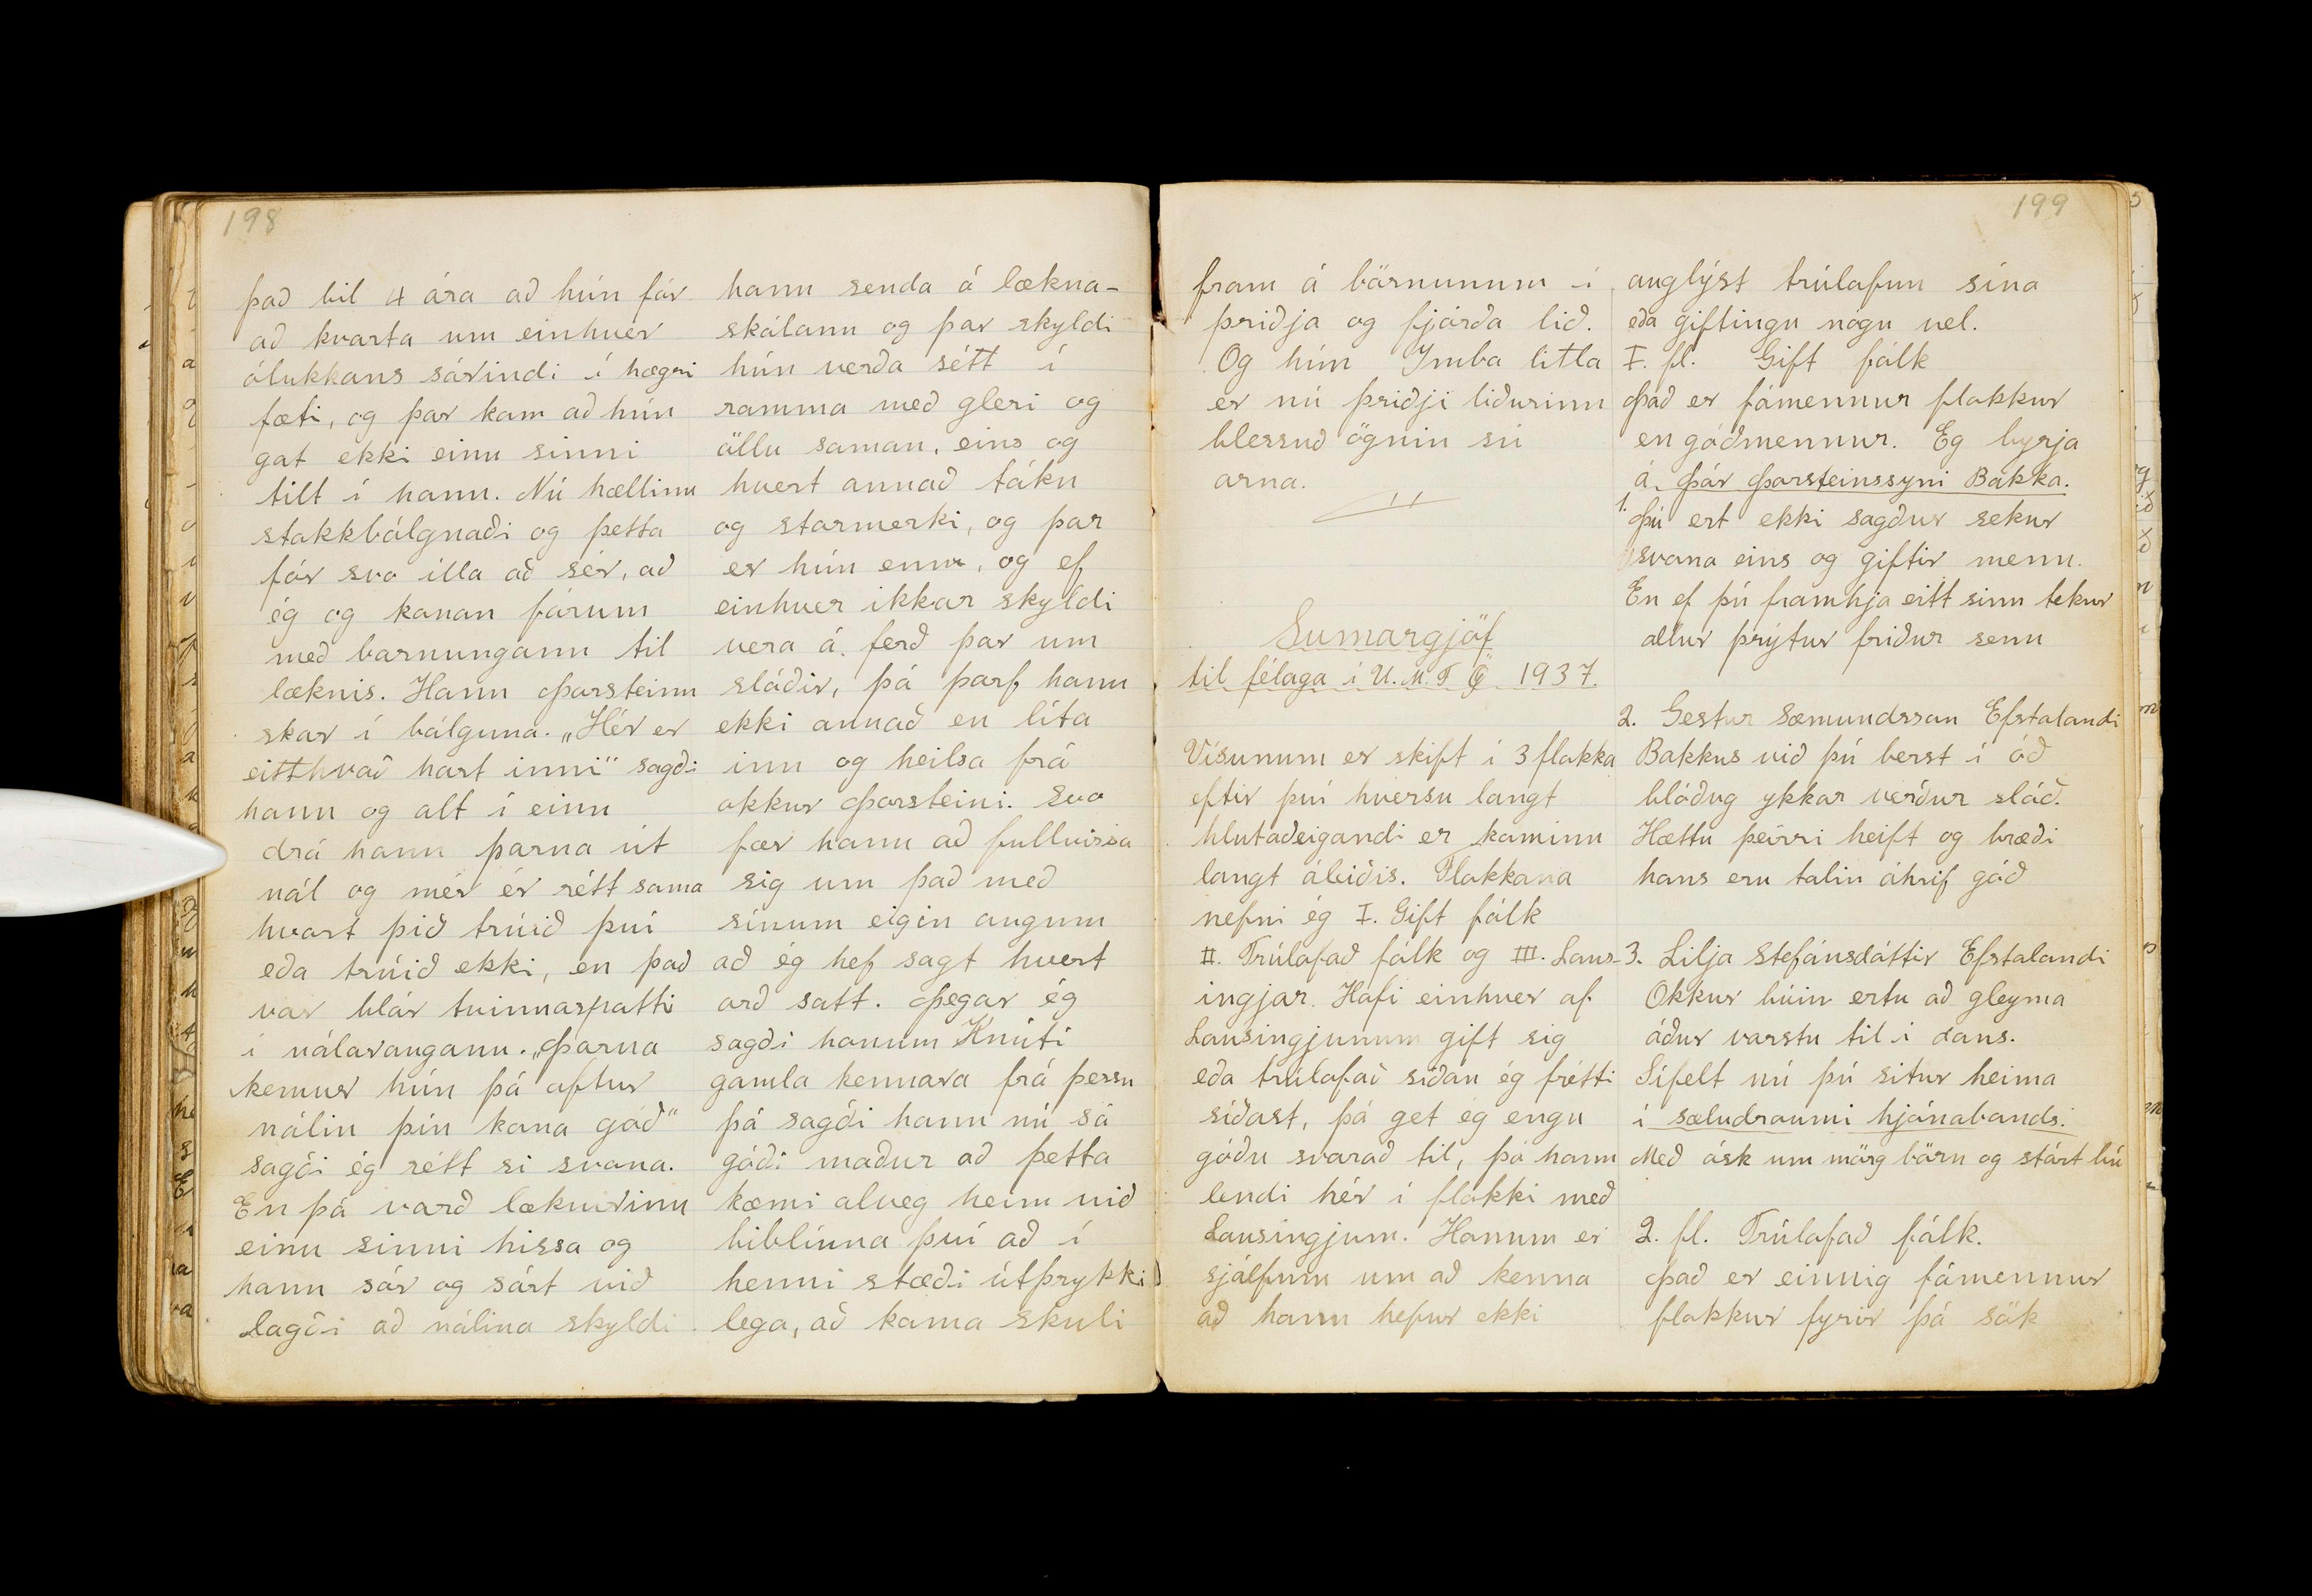 198
það bil 4 ára að hún fór
að kvarta um einhver
ólukkans sárindi í hægri
fæti, og þar kom að hún
gat ekki einu sinni
tilt í hann. Nú hællinn
stokkbólgnaði og þetta
fór svo illa að sér, að
ég og konan fórum
með barnungann til
læknis. Hann Þorsteinn
skar í bólguna. „Hér er
eitthvað hart inni" sagði
hann og alt í einu
dró hann þarna út
nál og mér er rétt sama
hvort þið trúið því
eða trúið ekki, en það
var blár tvinnaspotti
í nálarauganu. „Þarna
kemur hún þá aftur
nálin þín kona góð"
sagði ég rétt si svona.
En þá varð læknirinn
einu sinni hissa og
hann sór og sárt við
lagði að nálina skyldi
hann senda á lækna-
skólann og þar skyldi
hún verða sétt í
ramma með gleri og
öllu saman, eins og
hvert annað tákn
og stormerki, og þar
er hún enn, og ef
einhver ikkar skyldi
vera á ferð þar um
slóðir, þá þarf hann
ekki annað en líta
inn og heilsa frá
okkur Þorsteini. Svo
fær hann að fullvissa
sig um það með
sínum eigin augum
að ég hef sagt hvert
orð satt. Þegar ég
sagði honum Knúti
gamla kennara frá þessu
þá sagði hann nú sá
góði maður að þetta
kæmi alveg heim við
biblíuna því að í
henni stæði útþrykki
lega, að koma skuli
199
fram á börnunum í
þriðja og fjórða lið.
Og hún Imba litla
er nú þriðji liðurinn
blessuð ögnin sú
arna.
Sumargjöf
til félaga í U.M.F Ö 1937.
Vísunum er skift í 3 flokka
eftir því hversu langt
hlutaðeigandi er kominn
langt áleiðis. Flokkana
nefni ég I. Gift fólk
II. Trúlofað fólk og III. Laus-
ingjar. Hafi einhver af
Lausingjunum gift sig
eða trúlofað síðan ég frétti
síðast, þá get ég engu
góðu svarað til, þó hann
lendi hér í flokki með
Lausingjum. Honum er
sjálfum um að kenna
að hann hefur ekki
auglýst trúlofun sína
eða giftingu nógu vel.
I. fl. Gift fólk
Það er fámennur flokkur
en góðmennur. Eg byrja
á Þór Þorsteinssyni Bakka.
1. Þú ert ekki sagður sekur
svona eins og giftir menn.
En ef þú framhja eitt sinn tekur
allur þrýtur friður senn
2. Gestur Sæmundsson Efstalandi
Bakkus við þú berst í óð
blóðug ykkar verður slóð.
Hættu þeirri heift og bræði
hans eru talin áhrif góð
3. Lilja Stefánsdóttir Efstalandi
Okkur búin ertu að gleyma
áður varstu til í dans.
Sífelt nú þú situr heima
í sæludraumi hjónabands.
Með ósk um mörg börn og stórt bú
2. fl. Trúlofað fólk.
Það er einnig fámennur
flokkur fyrir þá sök